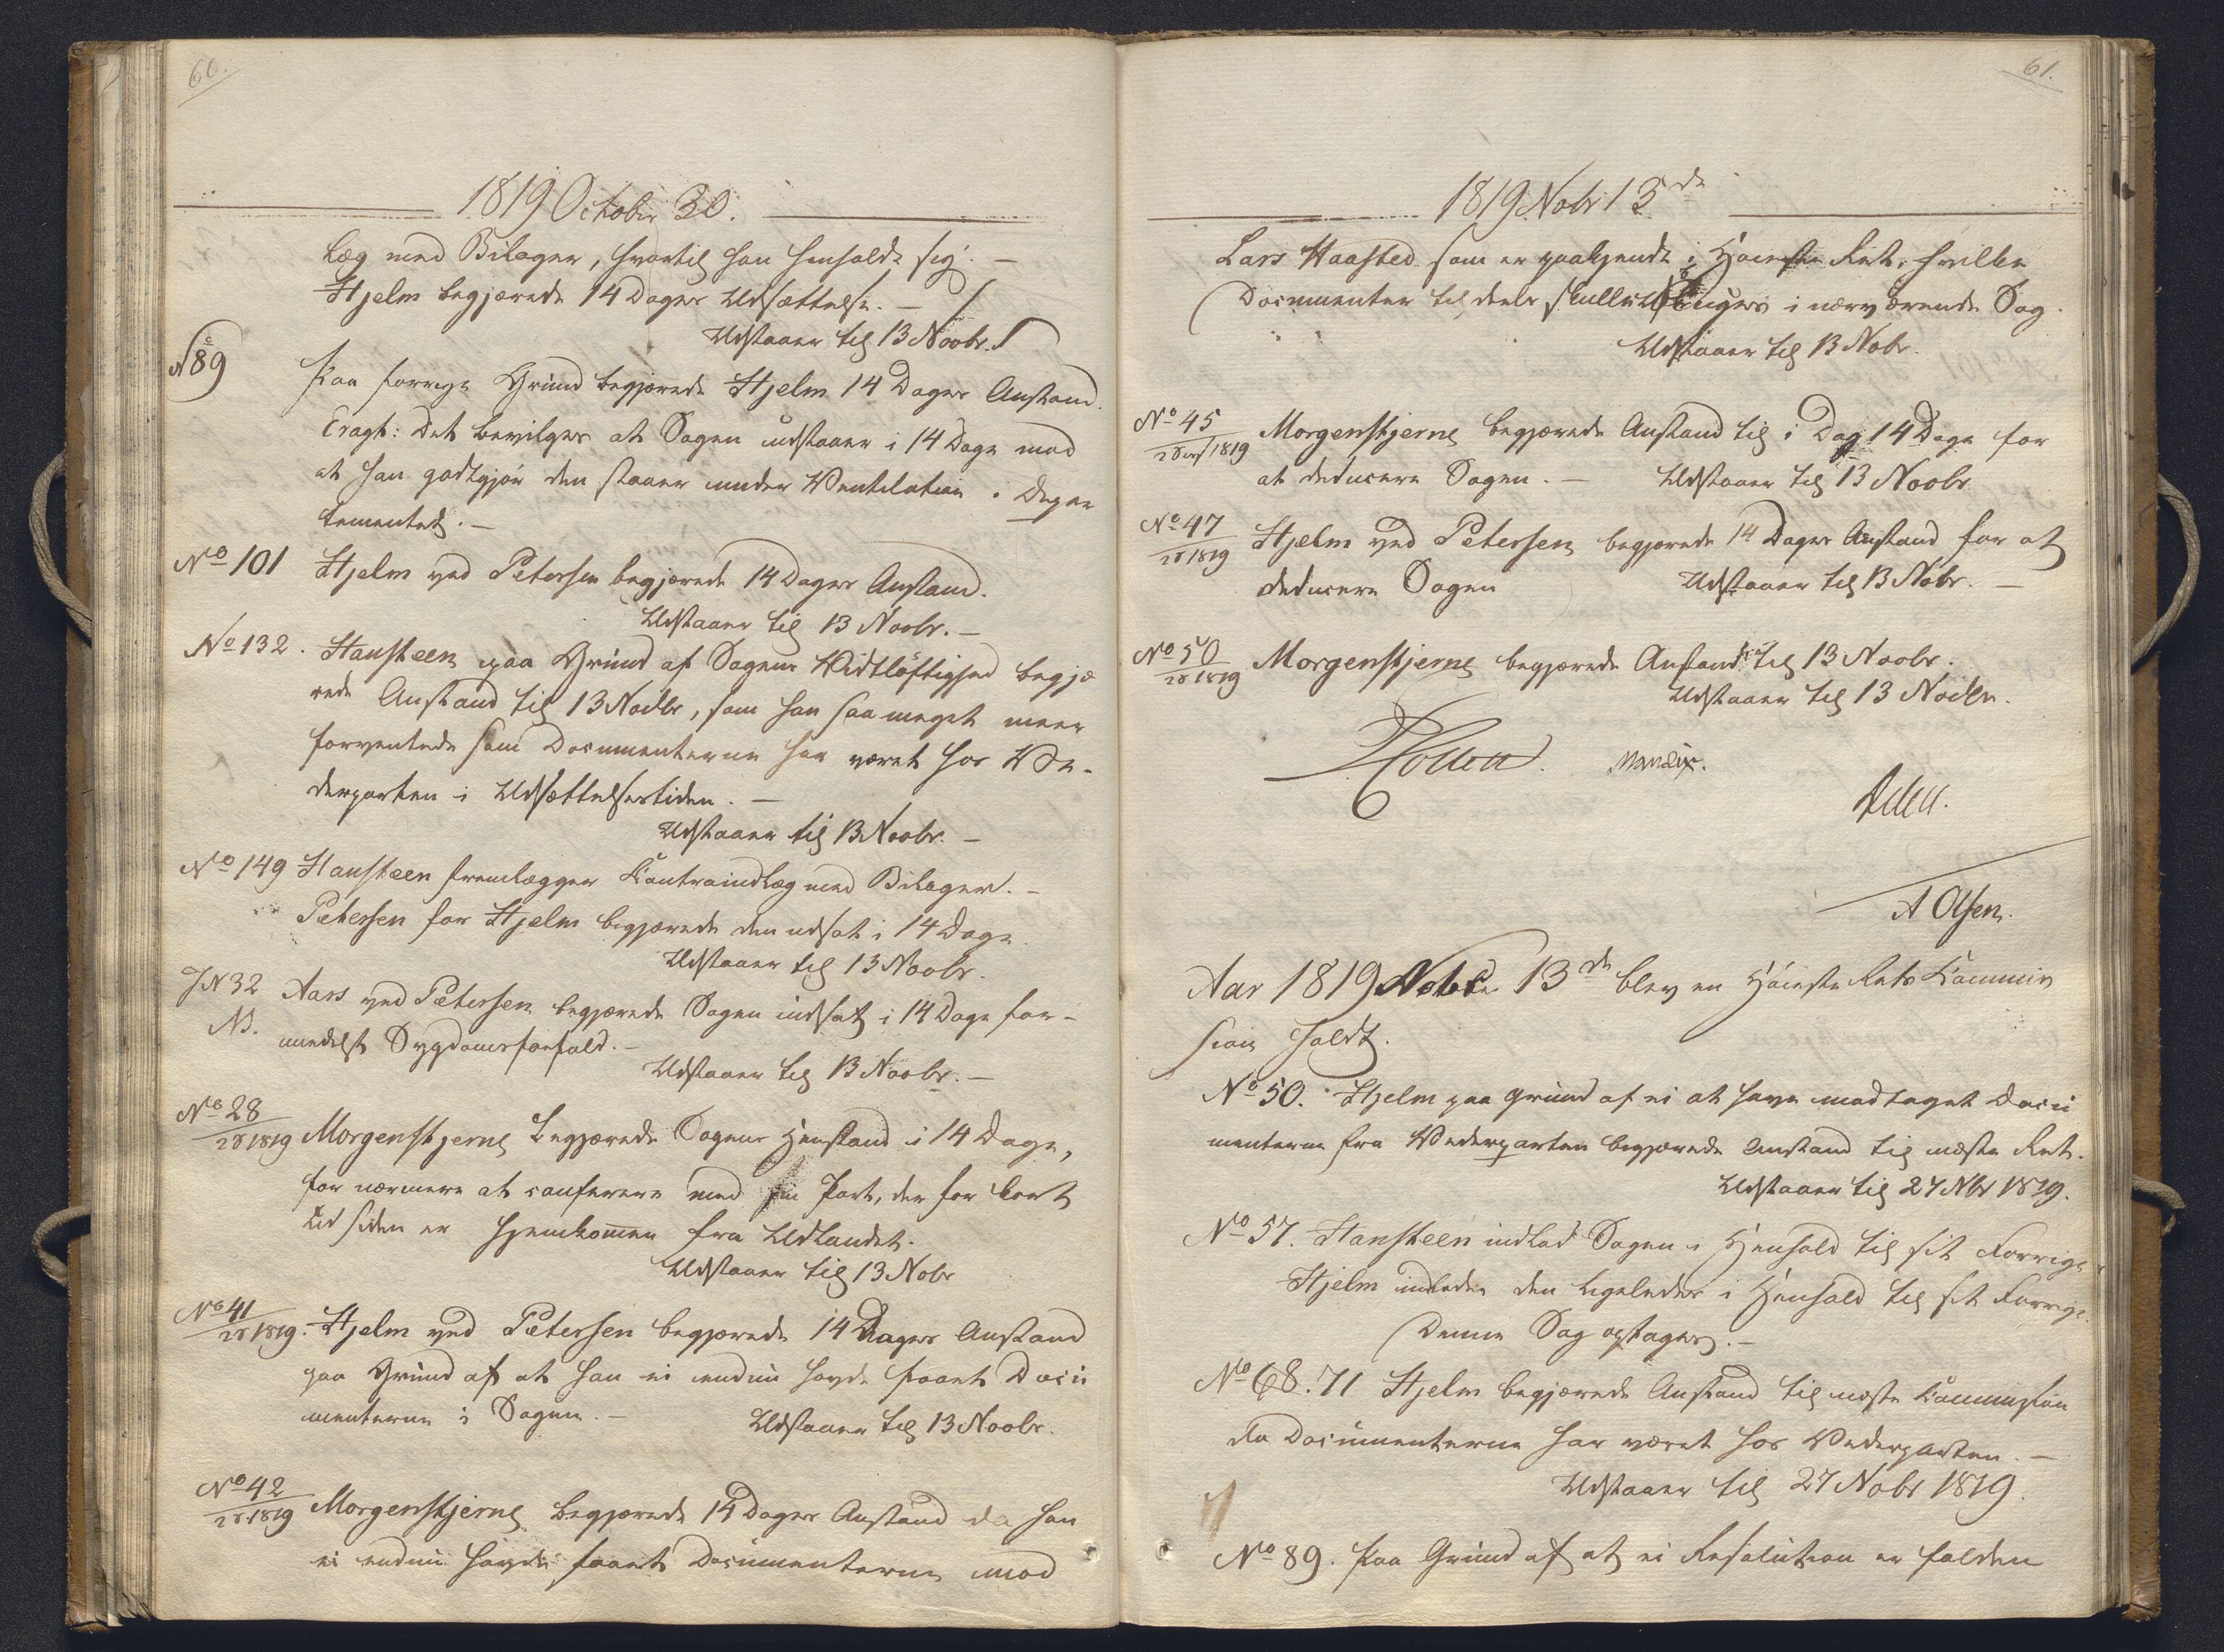 60.
1819 October 30.
læg med Bilager, hvortil han henholdt sig. —
Hjelm begjærede 14 Dages Udsættelse. —
Udstaaer til 13 Novbr.
N 89
Paa forrige Grund begjærede Hjelm 14 Dages Anstand.
Eragt: Det bevilges at Sagen udstaaer i 14 Dage mod
at han godtgjør den staaer under Ventilation i Depar
tementet. —
No 101 Hjelm ved Petersen begjærede 14 Dages Anstand.
Udstaaer til 13 Novbr. —
No 132. Hansteen paa Grund af Sagens Vidtløftighed begjæ
rede Anstand til 13 Novbr, som han saa meget meer
forventede som Documenterne har været hos Ve-
derparten i Udsættelsestiden. —
Udstaaer til 13 Novbr. —
No 149 Hansteen fremlægger Contraindlæg med Bilager. —
Petersen for Hjelm begjærede den udsat i 14 Dage
Udstaaer til 13 Novbr.
N 32 Aars ved Petersen begjærede Sagen udsat i 14 Dage for-
NB. medelst Sygdomsforfald. —
Udstaaer til 13 Novbr. —
No 28
1819 Morgenstjerne begjærede Sagens Henstand i 14 Dage,
for nærmere at conferere med sin Part, der for kort
Tid siden er hjemkommen fra Udlandet.
Udstaaer til 13 Nobr
No 41
1819. Hjelm ved Petersen begjærede 14 Dages Anstand
paa Grund af at han ei endnu havde faaet Docu
menterne i Sagen. — Udstaaer til 13 Novbr.
No 42
1819 Morgenstjerne begjærede 14 Dages Anstand da han
ei endnu havde faaet Documenterne mod
61.
1819 Nobr 13de
Lars Haasted som er paakjendt i Høieste Ret, hvilke
Documenter til deels skulle bruges i nærværende Sag.
Udstaaer til 13 Nobr.
No 45
1819 Morgenstjerne begjærede Anstand til i Dag 14 Dage for
at deducere Sagen. — Udstaaer til 13 Novbr
No 47
1819 Hjelm ved Petersen begjærede 14 Dages Anstand for at
deducere Sagen Udstaaer til 13 Nobr. —
No 50
1819 Morgenstjerne begjærede Anstand til 13 Novbr.
Udstaaer til 13 Novbr.
Mandix.
A Olsen.
Aar 1819 Novbr 13de blev en Høieste Rets Commis
sion holdt.
No 50. Hjelm paa Grund af ei at have modtaget Docu
menterne fra Vederparten begjærede Anstand til næste Ret.
Udstaaer til 27 Nbr 1819.
No 57. Hansteen indlod Sagen i Henhold til sit Forrige.
Hjelm indlod den ligeledes i Henhold til sit Forrige.
Denne Sag optages. —
No 68. 71 Hjelm begjærede Anstand til næste Commission
da Documenterne har været hos Vederparten. —
Udstaaer til 27 Nobr 1819.
No 89. Paa Grund af at ei Resolution er falden